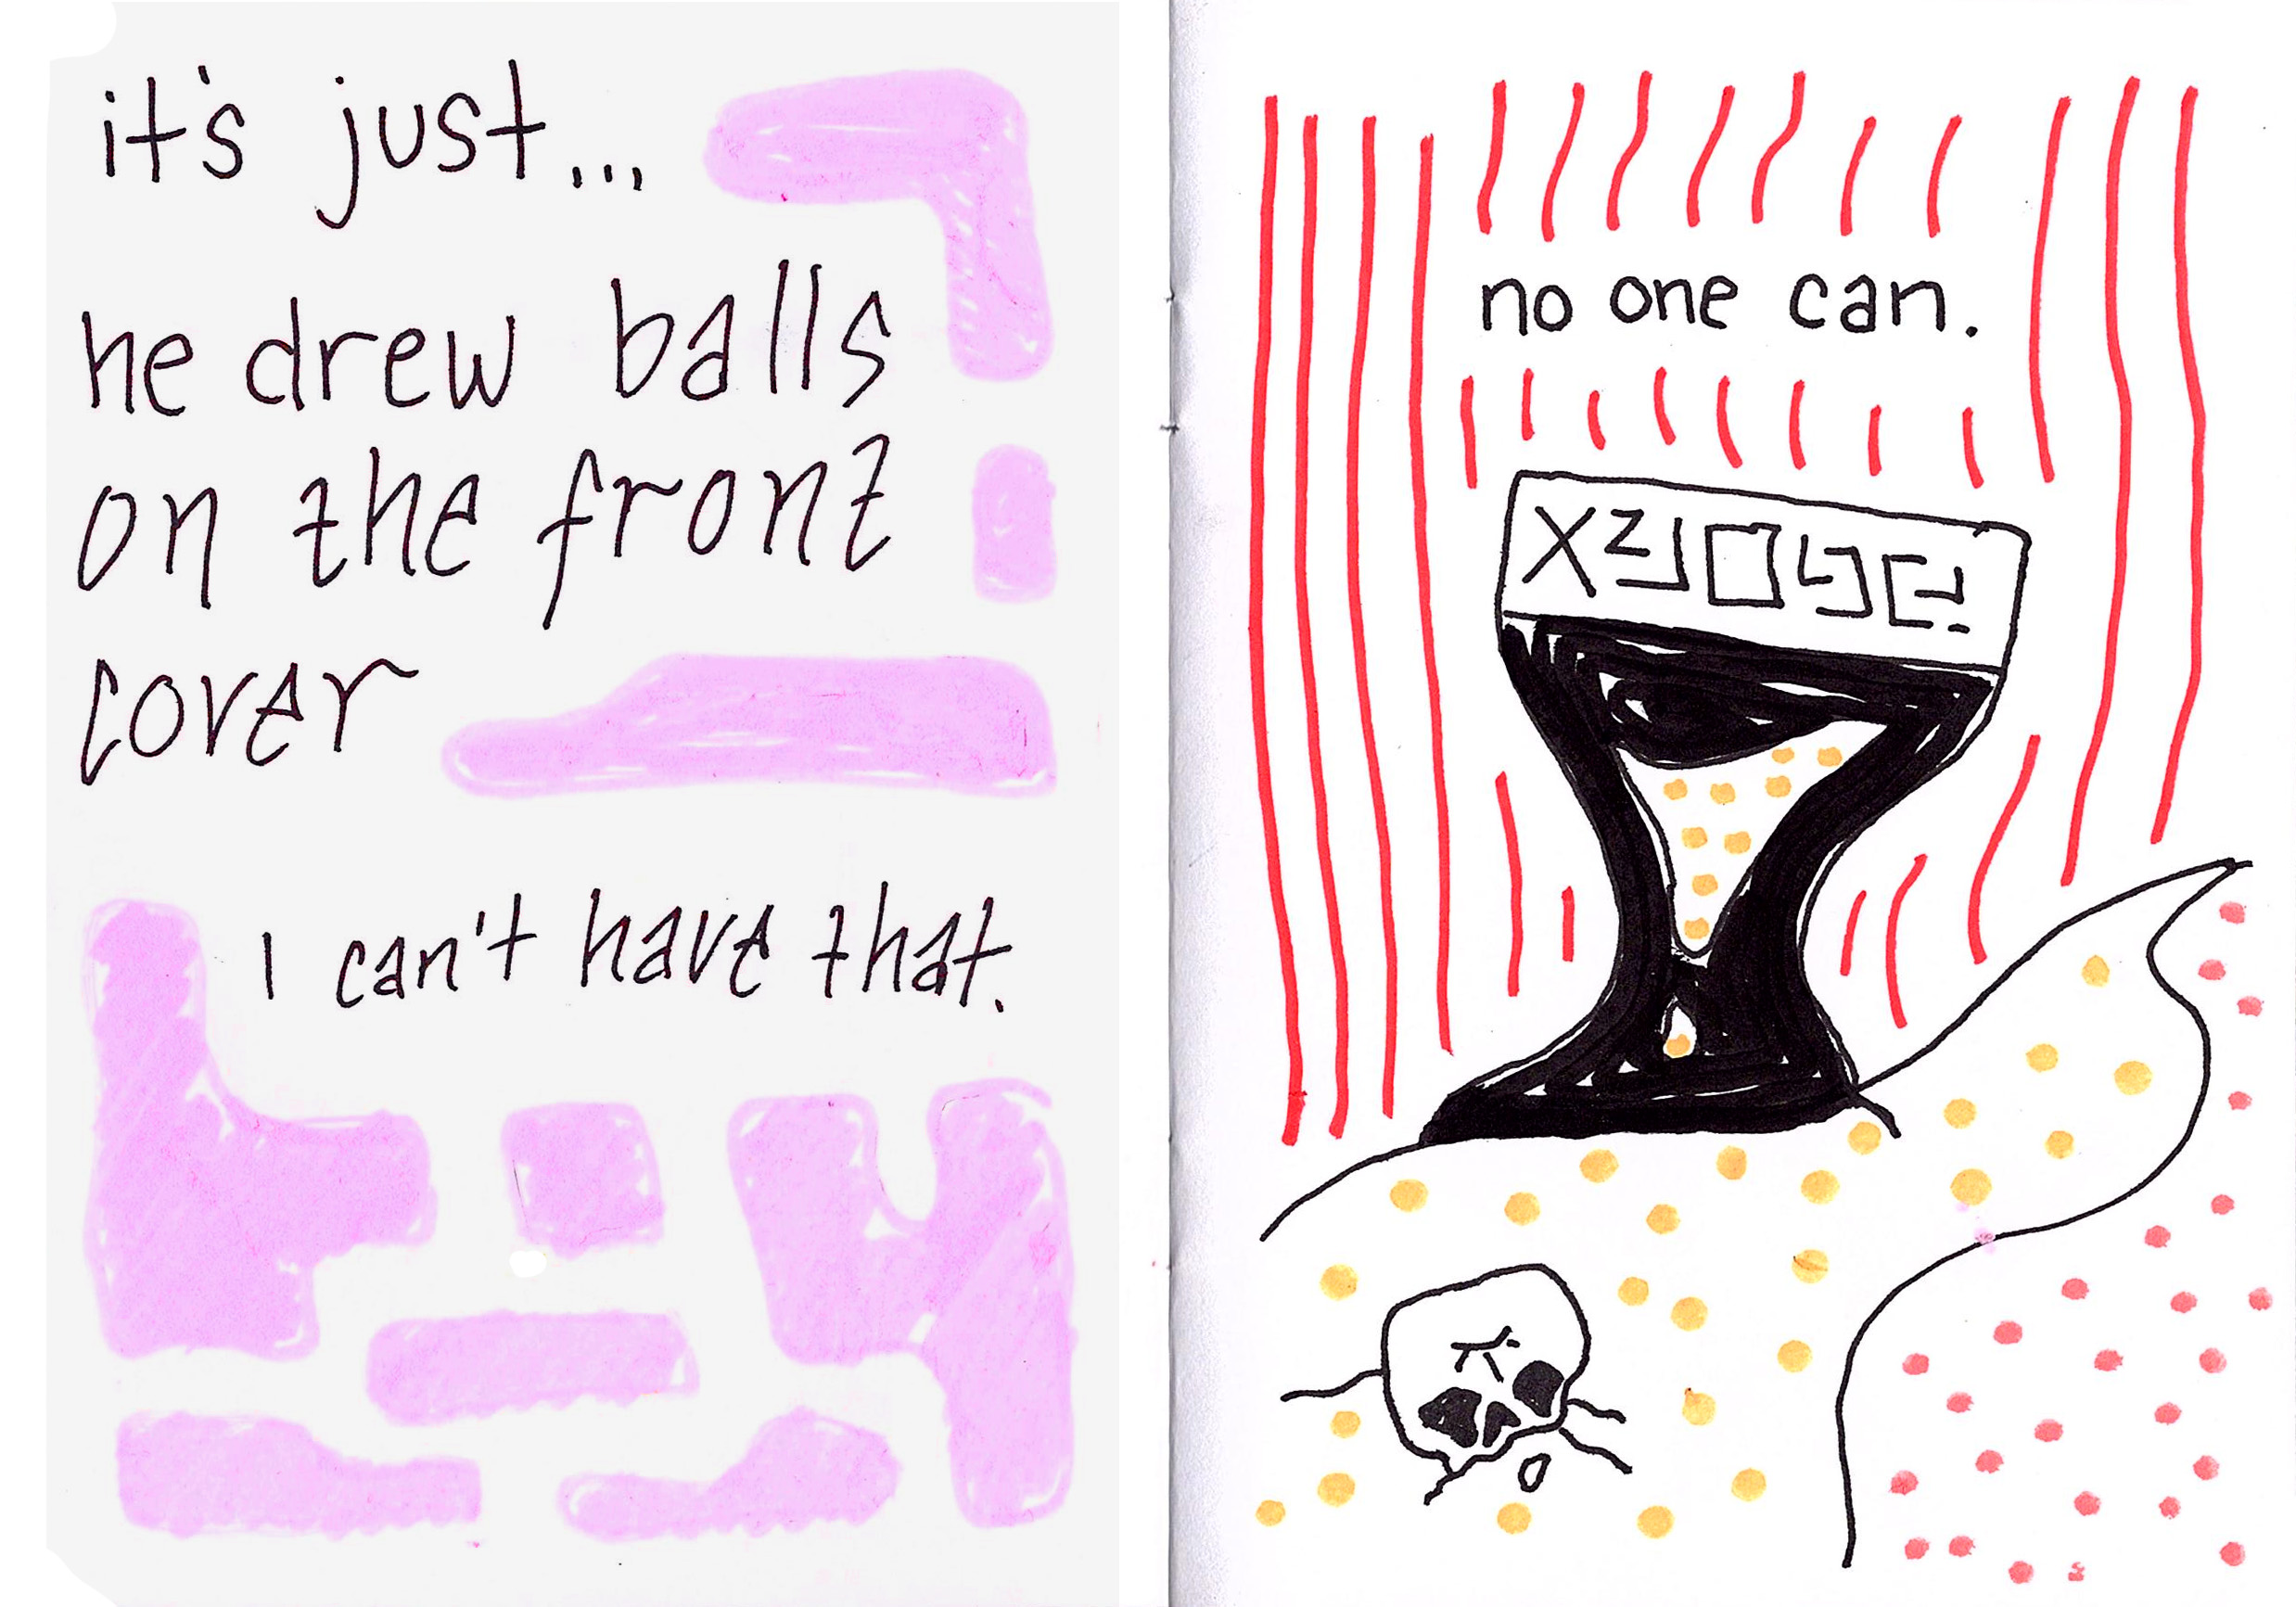 it's just...
he drew balls
on the front
cover
I can't have that.
no one can.